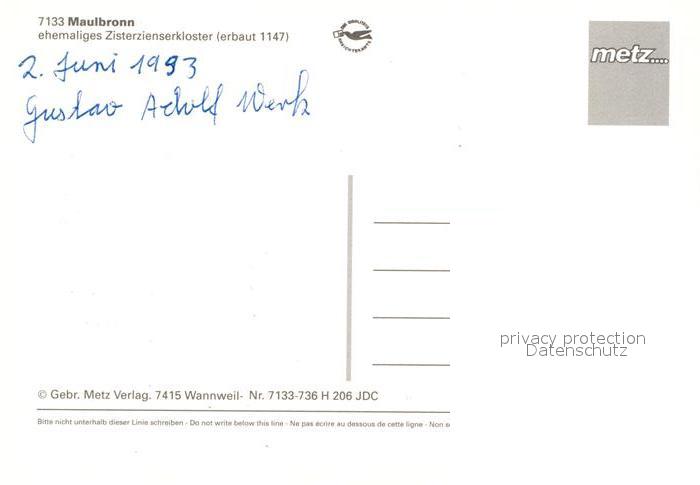 7133 Maulbronn
ehemaliges Zisterzienserkloster (erbaut 1147)
2. Juni 1993
Gustav Adolf Werk
metz....
privacy protection
Datenschutz
© Gebr. Metz Verlag. 7415 Wannweil- Nr. 7133-736 H 206 JDC
Bitte nicht unterhalb dieser Linie schreiben - Do not write below this line - Ne pas écrire au dessous de cette ligne - Non s